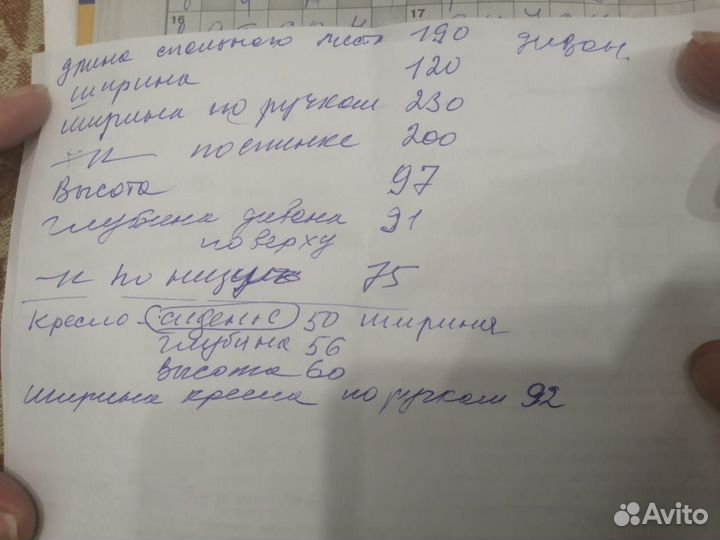 16
17
длина спального места 190 диван
ширина 120
ширина по ручкам 230
-"- по спинке 200
Высота 97
глубина дивана 91
поверху
-"- по низу 75
Кресло - сиденье 50 ширина
глубина 56
высота 60
ширина кресла по ручкам 92
Avito